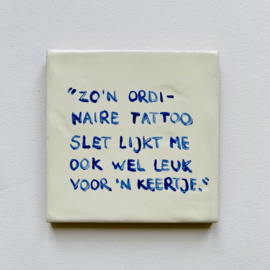 "ZO'N ORDI-
NAIRE TATTOO
SLET LIJKT ME
OOK WEL LEUK
VOOR 'N KEERTJE."